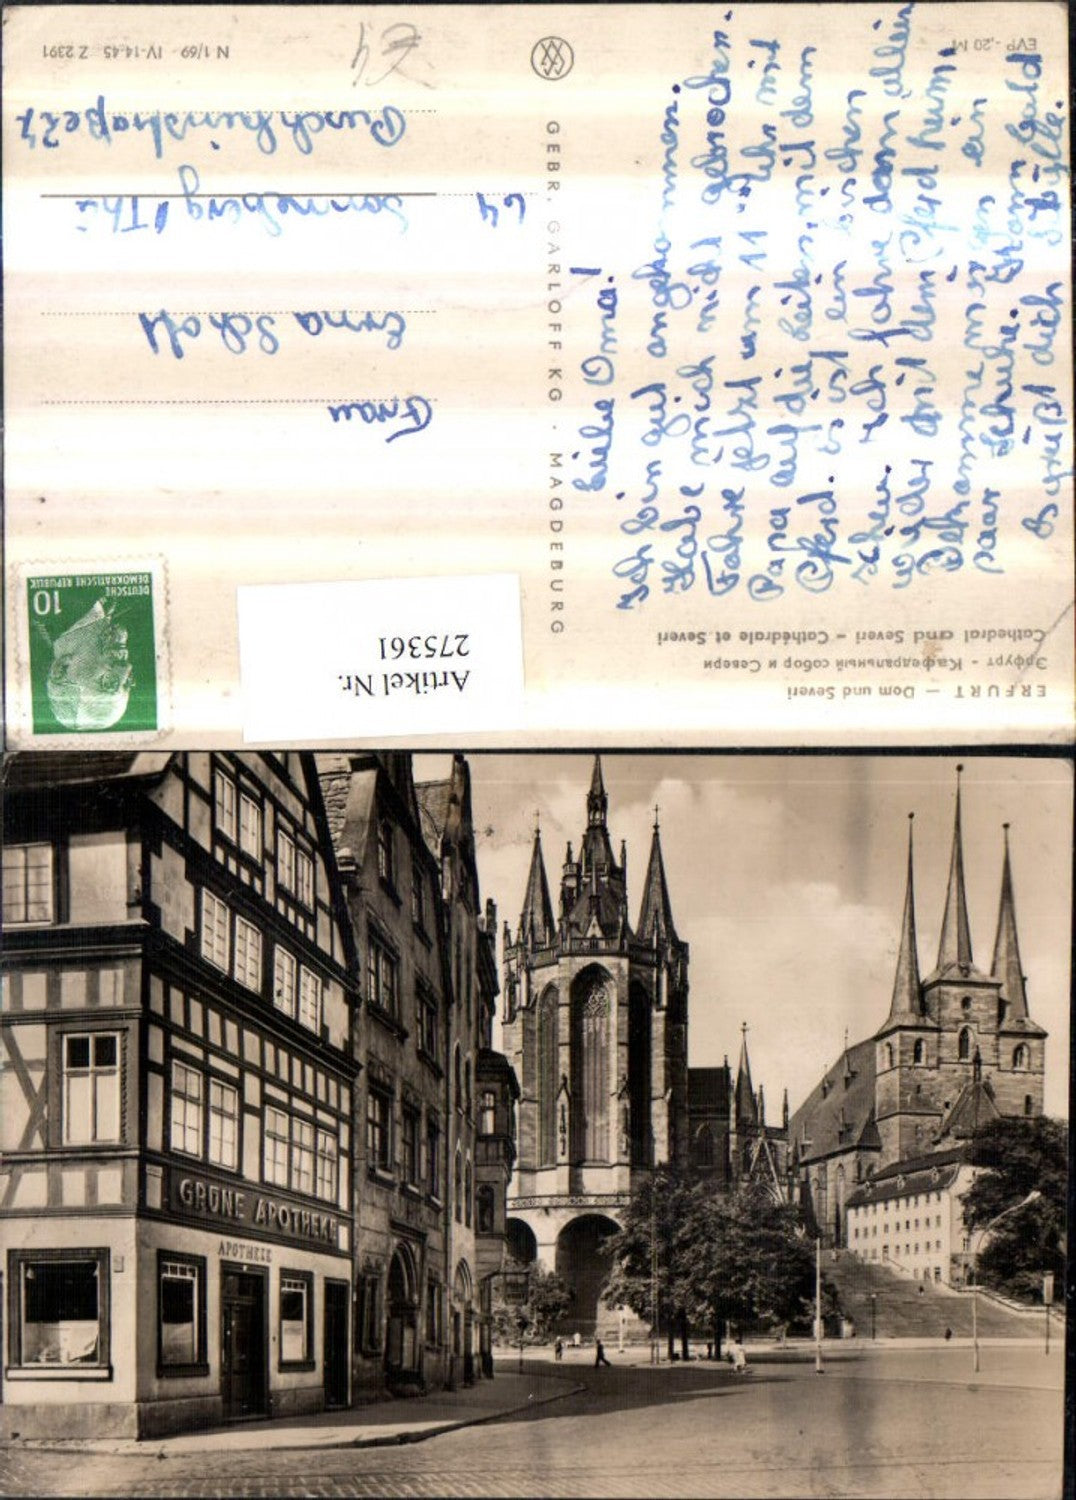 ERFURT — Dom und Severi
Эрфурт - Кафедральный собор и Севери
Cathedral and Severi – Cathédrale et Severi
Liebe Oma!
Ich bin gut angekommen.
Habe mich nicht gebrochen.
Fahre jetzt um 11 Uhr mit
Papa auf die Leiten mit dem
Pferd. is ist ein bischen
Ich fahre dann allein
wieder mit dem Pferd heim.
Bekomme ein
paar Schuhe. Komm bald
Es grüßt dich
GEBR. GARLOFF KG · MAGDEBURG
EVP -,20 M
N 1/69 IV-14-45 Z 2391
€4
Frau
Erna Scholl
64 Sonneberg/Thü
Puschkinstraße 27
DEUTSCHE
DEMOKRATISCHE REPUBLIK
10
Artikel Nr.
275361
GRÜNE APOTHEKE
APOTHEKE